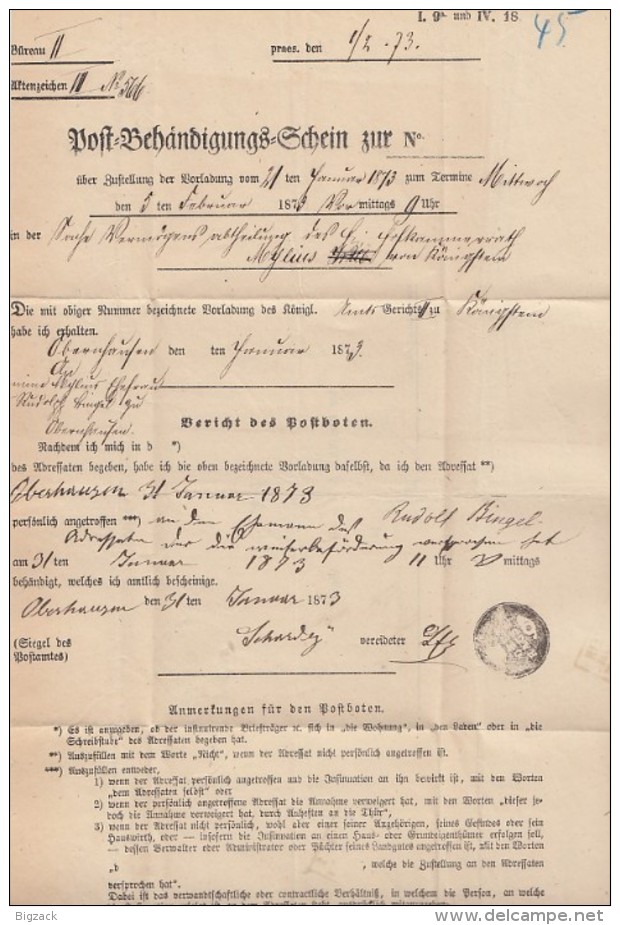 I. 9a. und IV. 18
45
Büreau II praes. den 1/2. 73.
Aktenzeichen III No 566
Post-Behändigungs-Schein zur No.
über Zustellung der Vorladung vom 21 ten Januar 1873 zum Termine Mittwoch
den 5 ten Februar 1873 Vor mittags 9 Uhr
in der Sache Vermögens abtheilung des Hofkammerrath
Mylius von Königstein
Die mit obiger Nummer bezeichnete Vorladung des Königl. Amts Gerichts II zu Königstein
habe ich erhalten.
Obernhausen den ten Januar 1873.
An
Mylius Ehefrau
Rudolph Bingel zu
Obernhausen.
Bericht des Postboten.
Nachdem ich mich in d *)
des Adressaten begeben, habe ich die oben bezeichnete Vorladung daselbst, da ich den Adressat **)
Oberhausen 31 Januar 1873
persönlich angetroffen ***) an den Ehemann des Rudolf Bingel
Adressaten der die weiterbeförderung versprochen hat
am 31 ten Januar 1873 11 Uhr V mittags
behändigt, welches ich amtlich bescheinige.
Oberhausen den 31 ten Januar 1873
(Siegel des vereideter
Postamtes)
Anmerkungen für den Postboten.
*) Es ist anzugeben, ob der insinuirende Briefträger ꝛc. sich in „die Wohnung“, in „den Laden“ oder in „die
Schreibstube“ des Adressaten begeben hat.
**) Auszufüllen mit dem Worte „Nicht“, wenn der Adressat nicht persönlich angetroffen ist.
***) Auszufüllen entweder,
1) wenn der Adressat persönlich angetroffen und die Insinuation an ihn bewirkt ist, mit den Worten
„dem Adressaten selbst“ oder
2) wenn der persönlich angetroffene Adressat die Annahme verweigert hat, mit den Worten „dieser je-
doch die Annahme verweigert hat, durch Anheften an die Thür“,
3) wenn der Adressat nicht persönlich, wohl aber einer seiner Angehörigen, seines Gesindes oder sein
Hauswirth, oder — insofern die Insinuation an einen Haus- oder Grundeigenthümer erfolgen soll,
— dessen Verwalter oder Administrator oder Pächter seines Landgutes angetroffen ist, mit den Worten
„d , welche die Zustellung an den Adressaten
versprochen hat“.
Dabei ist das verwandtschaftliche oder contractliche Verhältniß, in welchem die Person, an welche
Bigzack
www.delcampe.net